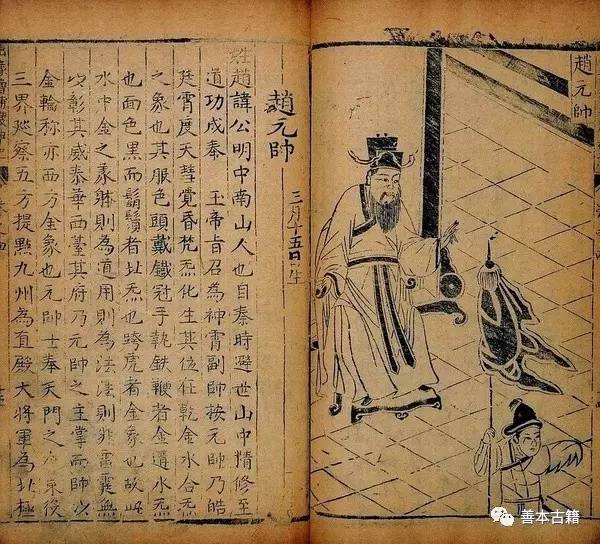 趙元帥
趙元帥
三月十五日生
姓趙諱公明中南山人也自秦時避世山中精修至
道功成奉 玉帝旨召為神霄副帥按元帥乃皓
廷霄度天彗覺昏梵炁化生其位在乾金水合炁
之象也其服色頭戴鐵冠手執鉄鞭者金遘水炁
也面色黑而鬍鬚者北炁也跨虎者金象也故此
水中金之象躰則為道用則為法法則非雷霆無
以彰其威泰華西臺其府乃元帥之主掌而帥以
金輪称亦西方金象也元帥士奉天門之令策役
三界廵察五方提點九州為直殿大將軍為北極
善本古籍